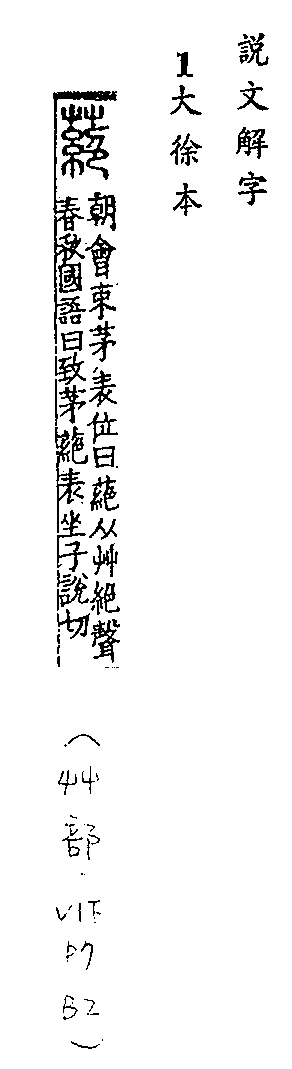 說文解字
1大徐本
蕝
朝會束茅表位曰蕝从艸絕聲
春秋國語曰致茅蕝表坐子說切
(艸部.V1下P7B2)